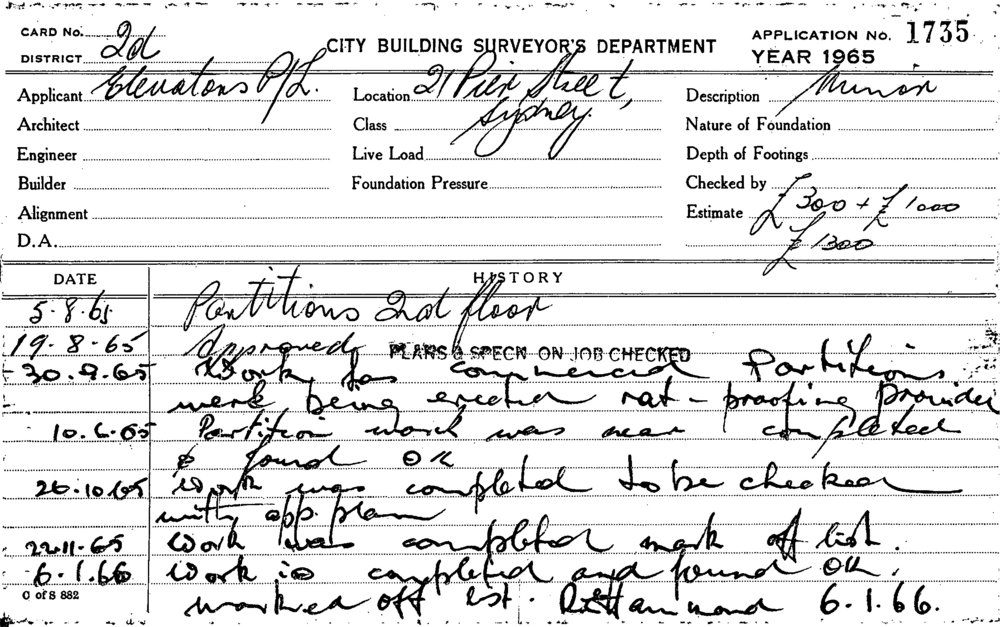 CARD No. 2d
DISTRICT
CITY BUILDING SURVEYOR'S DEPARTMENT
APPLICATION No. 1735
YEAR 1965
Applicant Elevators P/L.
Location 21 Pier Street,
Sydney.
Description Minor
Architect
Class
Nature of Foundation
Engineer
Live Load
Depth of Footings
Builder
Foundation Pressure
Checked by
Alignment
Estimate £300 + £1000
£1300
D.A.
DATE HISTORY
5.8.65 Partitions 2nd floor
19.8.65 Approved PLANS & SPECN ON JOB CHECKED
30.9.65 Work has commenced Partitions
were being erected rat-proofing provided
Partition work was near completed
& found OK
26.10.65 Work was completed to be checked
with app. plan
22.11.65 Work was completed mark off list.
6.1.66 Work is completed and found OK.
marked off list. 6.1.66.
C of S 882